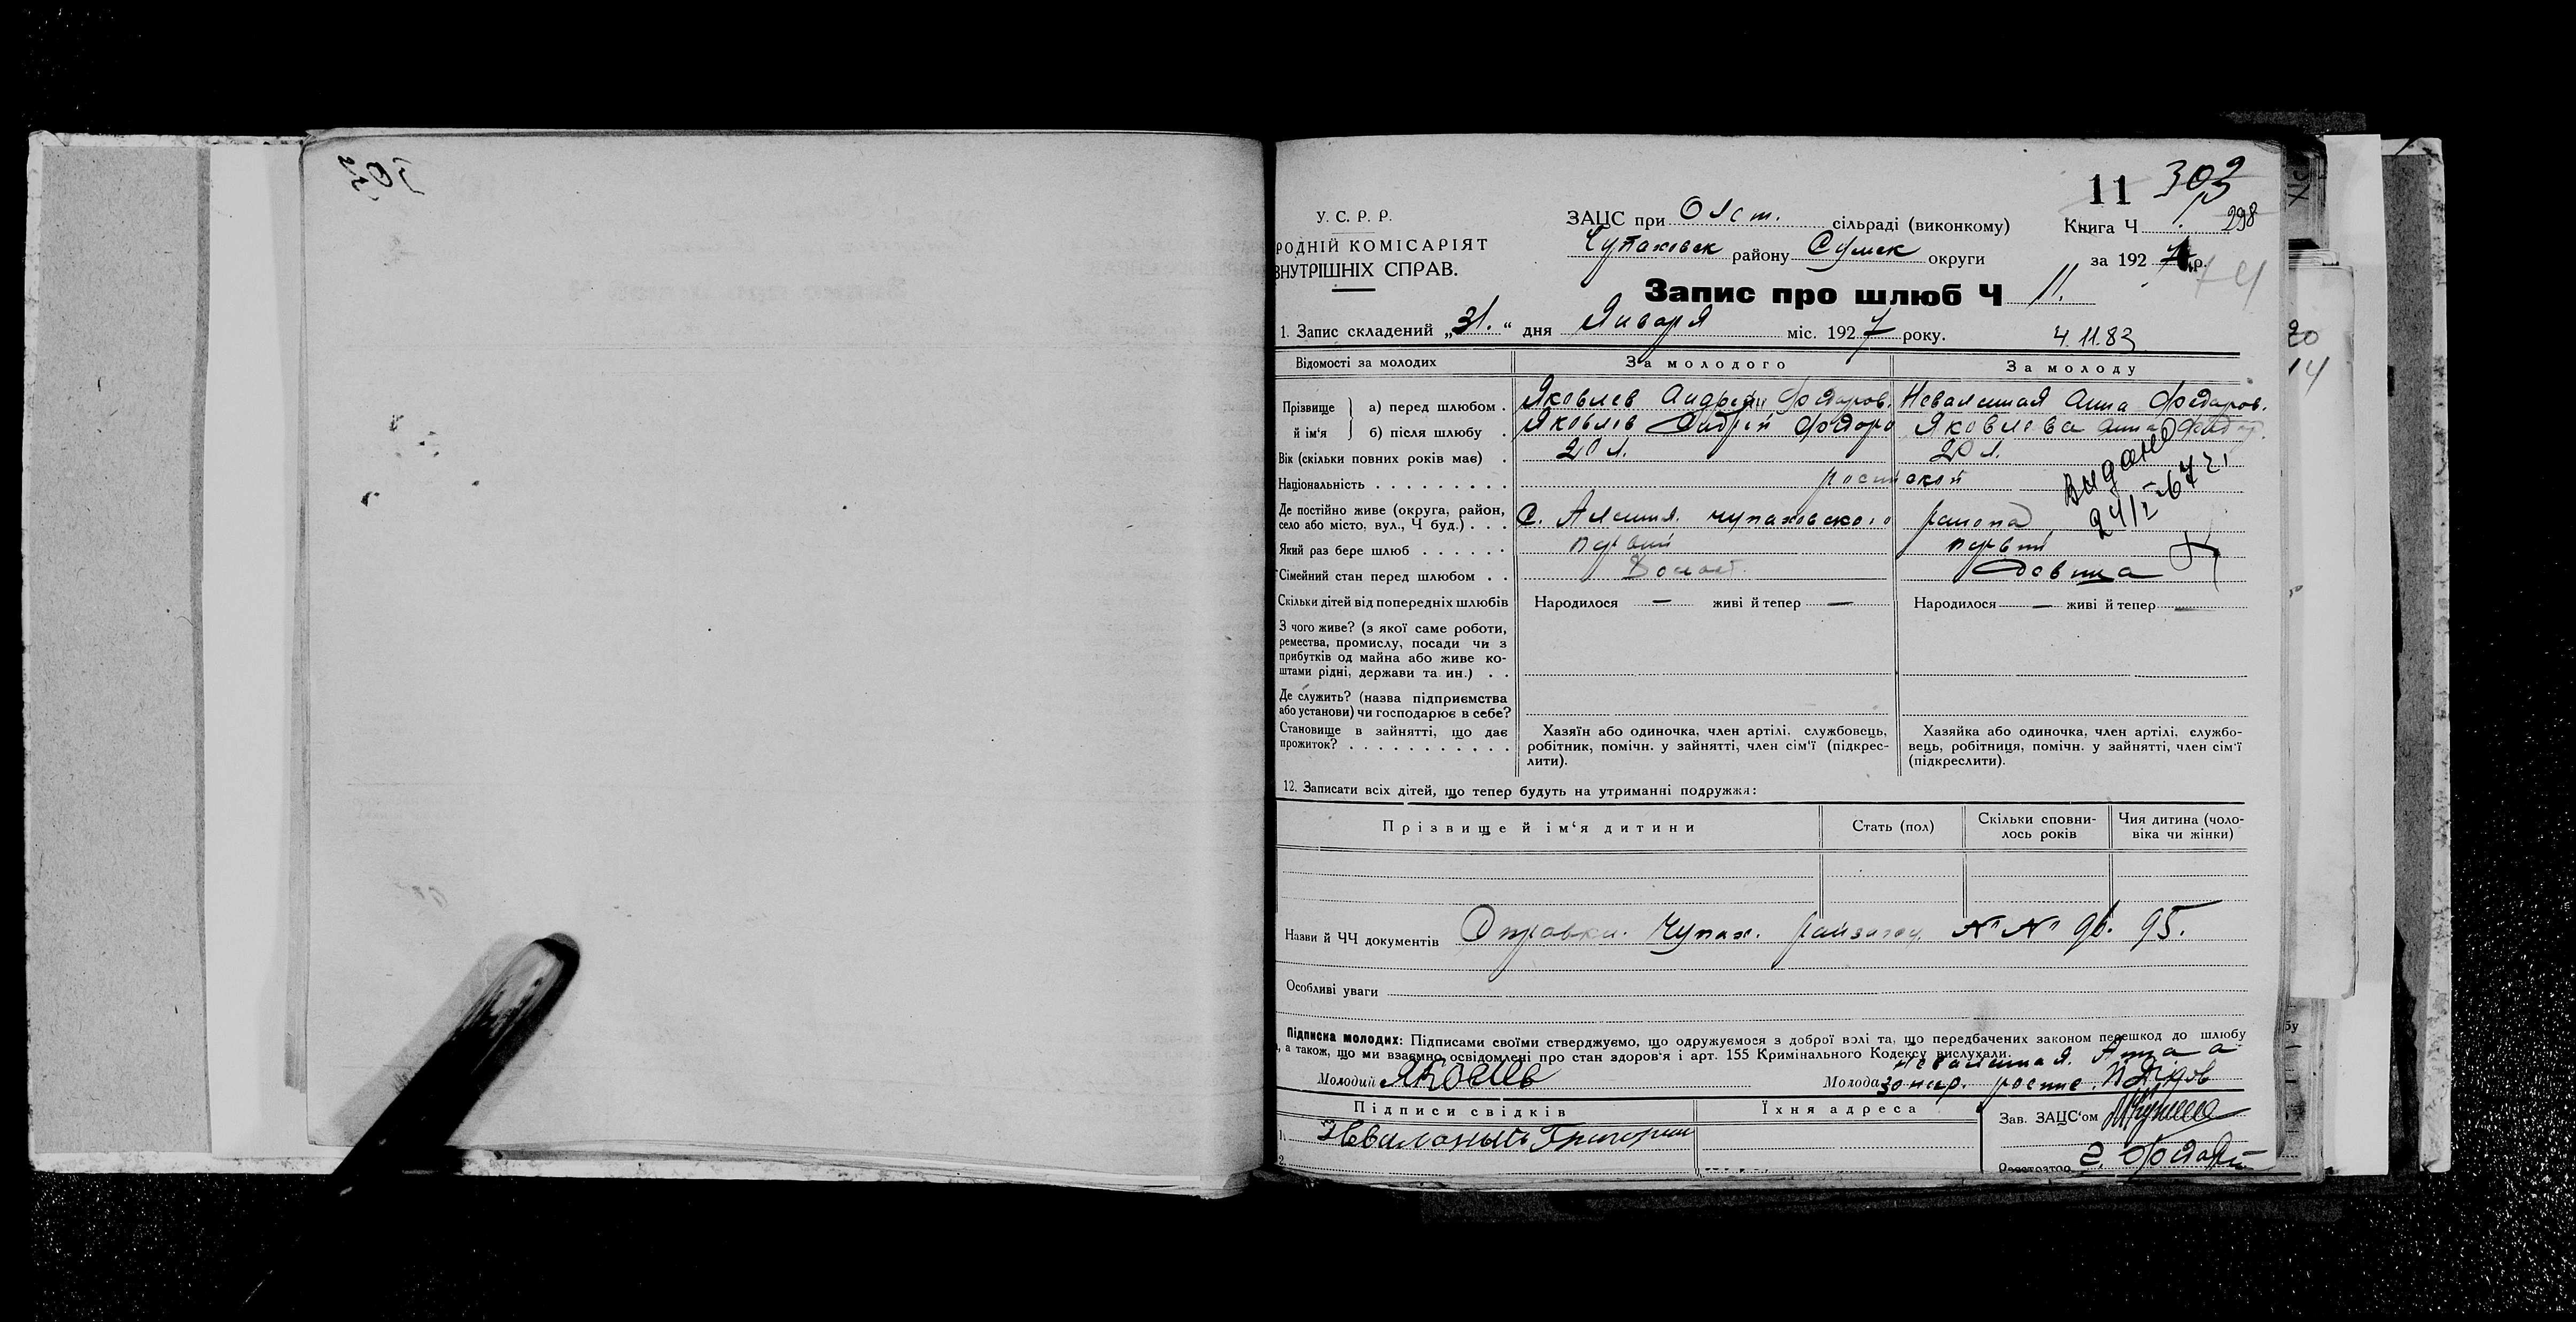 303
11 303
298
У. С. Р. Р.
РОДНІЙ КОМІСАРІЯТ
ВНУТРІШНІХ СПРАВ.
ЗАЦС при Олеш. сільраді (виконкому) Книга Ч 1.
Чупаховск району Сумск округи за 1927 р.
Запис про шлюб Ч 11.
1. Запис складений „31.“ дня Января міс. 1927 року. 4.11.83
Відомості за молодих За молодого За молоду
Прізвище й ім‘я а) перед шлюбом . Яковлев Андрей Федоров. Неваленная Анна Федоров.
б) після шлюбу . Яковлев Андрей Федоро Яковлева Анна Федор.
Вік (скільки повних років має) . 20 л. 20 л.
Національність . . . . . . . . . российской
Видано
Де постійно живе (округа, район, село або місто, вул., Ч буд.) . . . С. Алешня. чупаховского района
Який раз бере шлюб . . . . . . первий первий
Сімейний стан перед шлюбом . . Холост. Девица
Скільки дітей від попередніх шлюбів Народилося — живі й тепер — Народилося — живі й тепер —
З чого живе? (з якої саме роботи,
ремества, промислу, посади чи з
прибутків од майна або живе ко-
штами рідні, держави та ин.) . .
Де служить? (назва підприємства
або установи) чи господарює в себе?
Становище в зайнятті, що дає
прожиток? . . . . . . . . . . .
Хазяїн або одиночка, член артілі, службовець,
робітник, помічн. у зайнятті, член сім‘ї (підкрес-
лити).
Хазяйка або одиночка, член артілі, службо-
вець, робітниця, помічн. у зайнятті, член сім‘ї
(підкреслити).
12. Записати всіх дітей, що тепер будуть на утриманні подружжя:
Прізвище й ім‘я дитини Стать (пол) Скільки сповни-лось років Чия дитина (чоло-віка чи жінки)
Назви й ЧЧ документів Справки. Чупах. райзагса №№ 96. 95.
Особливі уваги
Підписка молодих: Підписами своїми стверджуємо, що одружуємося з доброї волі та, що передбачених законом перешкод до шлюбу
, а також, що ми взаємно освідомлені про стан здоров‘я і арт. 155 Кримінального Кодексу вислухали.
Неваленная. Анна а
Молодий Яковлев Молода за негр. роспис.
Підписи свідків Їхня адреса Зав. ЗАЦС‘ом
1. Григорий
2.
Реєстратор